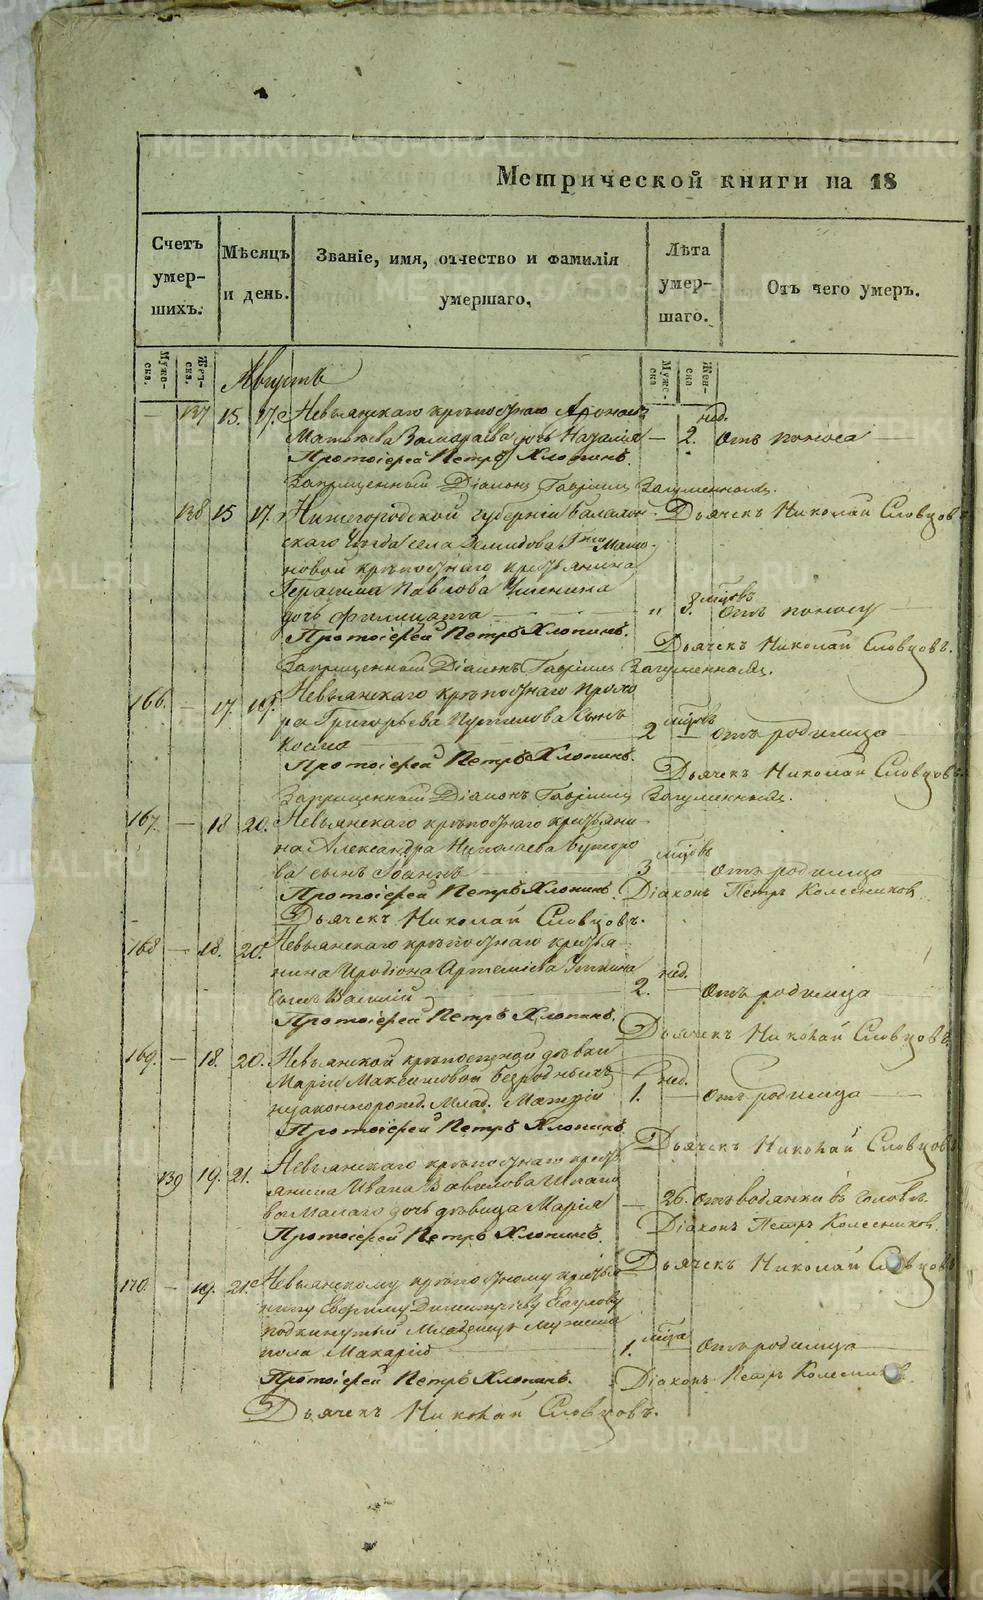 Метрической книги на 18
Счетъ умер- шихъ.
Мѣсяцъ и день.
Званіе, имя, отчество и фамилія умершаго.
Лѣта умер- шаго.
Отъ чего умеръ.
Муже- ска.
Жен- ска.
Муже- ска
Жен- ска
Августъ
— 137 15. 17. Невьянскаго крѣпостнаго
дочь Наталія — 2. нед. Отъ поноса —
Протоіерей Петръ Хлопинъ.
Запрещенный Діаконъ Гавріилъ
138 15 17. Нижегородской губерніи Балахон- Дьячекъ Николай Словцовъ
скаго уѣзда села
новой крѣпостнаго крестьянина
Герасима Павлова
дочь „ 3. мѣсцовъ Отъ поносу —
Протоіерей Петръ Хлопинъ. Дьячекъ Николай Словцовъ.
Запрещенный Діаконъ Гавріилъ
166. — 17. 19. Невьянскаго крѣпостнаго Прохо
ра Григорьева сынъ
Косма — 2 мѣсцовъ — Отъ родимца —
Протоіерей Петръ Хлопинъ. Дьячекъ Николай Словцовъ.
Запрещенный Діаконъ Гавріилъ
167. — 18 20. Невьянскаго крѣпостнаго крестьяни-
на Александра Николаева
ва сынъ Іоаннъ — 3 мѣсцовъ Отъ родимца
Протоіерей Петръ Хлопинъ. Діаконъ Петръ Колесников
Дьячекъ Николай Словцовъ.
168 — 18. 20. Невьянскаго крѣпостнаго крестья-
нина Иродіона Артеміева Уткина
сынъ Василій — 2. нед. — Отъ родимца —
Протоіерей Петръ Хлопинъ. Дьячекъ Николай Словцовъ.
169. — 18. 20. Невьянской крѣпостной дѣвки
Маріи Максимовой Безродныхъ
незаконнорожд. Млад. 1. нед. — Отъ родимца —
Протоіерей Петръ Хлопинъ. Дьячекъ Николай Словцовъ
139 19. 21. Невьянскаго крѣпостнаго крест
янина Ивана Вавилова
ва Малаго дочь дѣвица Марія — 26. Отъ водянки въ головѣ
Протоіерей Петръ Хлопинъ. Діаконъ Петръ Колесников
Дьячекъ Николай Словцовъ
170 — 19. 21. Невьянскому крѣпостному крестья
нину Евфиму Димитріеву
подкинутый Младенецъ мужеска
пола Макарій — 1. мѣсца — Отъ родимца —
Протоіерей Петръ Хлопинъ. Діаконъ Петръ Колесников
Дьячекъ Николай Словцовъ.
METRIKI.GASO-URAL.RU